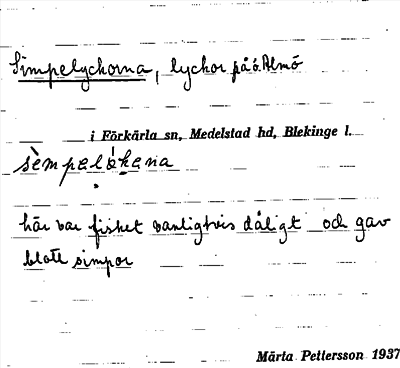 Simpelyckorna, lyckor på ö. Almö
i Förkärla sn, Medelstad hd, Blekinge l.
sèmpelá̤kena
här var fisket vanligtvis dåligt och gav
blott simpor
Märta Pettersson 1937